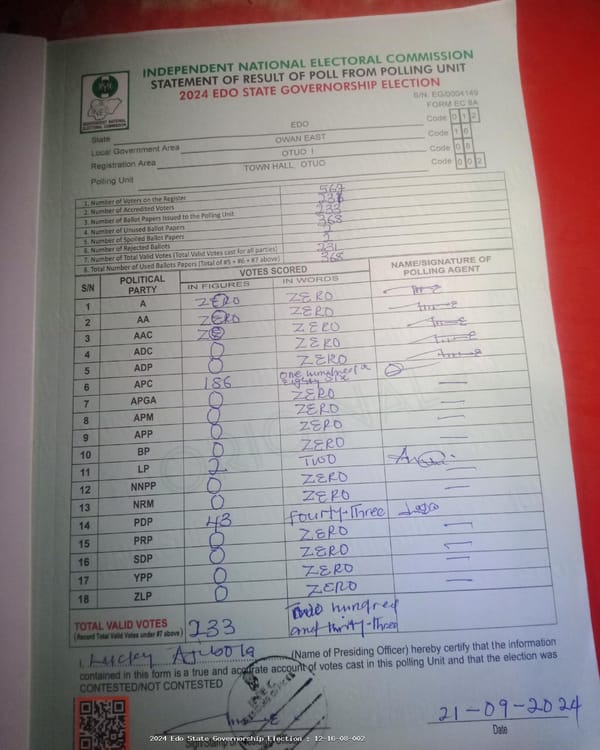 INDEPENDENT NATIONAL ELECTORAL COMMISSION
STATEMENT OF RESULT OF POLL FROM POLLING UNIT
2024 EDO STATE GOVERNORSHIP ELECTION
S/N: EG/0004149
FORM EC 8A
INDEPENDENT NATIONAL ELECTORAL COMMISSION
State EDO Code 012
1. Local Government Area OWAN EAST Code 16
Registration Area OTUO I Code 08
Polling Unit TOWN HALL, OTUO Code 002
1. Number of Voters on the Register 567
2. Number of Accredited Voters
3. Number of Ballot Papers Issued to the Polling Unit
4. Number of Unused Ballot Papers 368
5. Number of Spoiled Ballot Papers
6. Number of Rejected Ballots
7. Number of Total Valid Votes (Total Valid Votes cast for all parties) 231
8. Total Number of Used Ballots Papers (Total of #5 + #6 + #7 above) 368
S/N POLITICAL PARTY VOTES SCORED NAME/SIGNATURE OF POLLING AGENT
IN FIGURES IN WORDS
1 A ZERO ZERO
2 AA ZERO ZERO
3 AAC ZERO
4 ADC 0 ZERO
5 ADP 0 ZERO
6 APC 186 One hundred & Eighty Six
7 APGA 0 ZERO
8 APM 0 ZERO
9 APP 0 ZERO
10 BP 0 ZERO
11 LP 2 TWO
12 NNPP 0 ZERO
13 NRM 0 ZERO
14 PDP 43 fourty-Three
15 PRP 0 ZERO
16 SDP 0 ZERO
17 YPP 0 ZERO
18 ZLP 0 ZERO
TOTAL VALID VOTES 233 Two hundred
(Record Total Valid Votes under #7 above) and thirty-three
I, Lucky Ajibola (Name of Presiding Officer) hereby certify that the information
contained in this form is a true and accurate account of votes cast in this polling Unit and that the election was
CONTESTED/NOT CONTESTED
INEC
21-09-2024
Date
2024 Edo State Governorship Election : 12-16-08-002